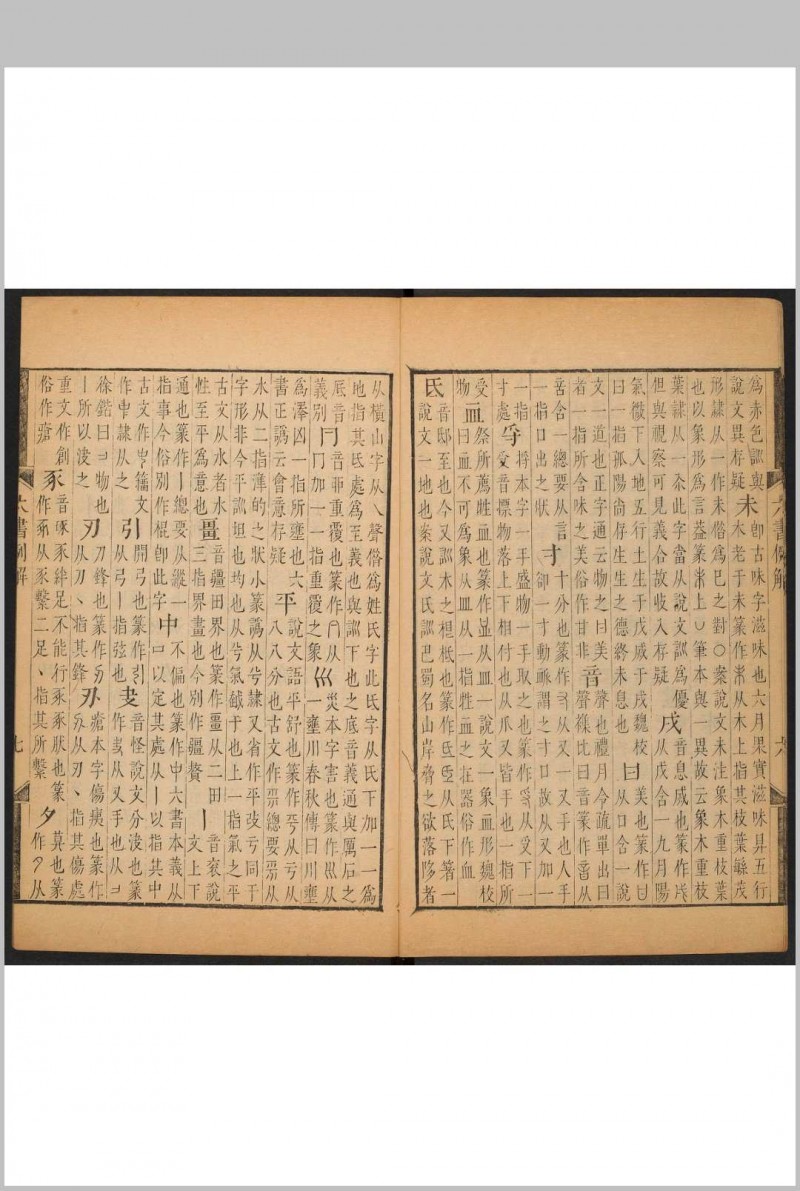 爲赤色訓與
說文異存疑未卽古味字滋味也六月果實滋味具五行
木老于未篆作从木上指其枝葉緐茂
形隸从一作未俗爲巳之對○案說文未注象木重枝葉
也以象形爲言葢篆上筆本與一異故云象木重枝
葉隸从一厺此字當从說文訓爲優戌音息烕也篆作
但與視察可見義合故收入存疑从戊含一九月陽
气微下入地五行土生于戊烕于戌魏校曰美也篆作
曰一指孤陽尙存生生之德終未息也从口含一說
文一道也正字通云物之曰美音聲也禮月令疏單出曰
者一指所含味之美俗作甘非聲襍比曰音篆作从
言含一總要从言寸十分也篆作从又一又手也人手
一指口出之狀卻一寸動脈謂之寸口故从又加一
一指寽捋本字一手盛物一手取之也篆作从又下一
寸處音摽物落上下相付也从爪又皆手也一指所
受血祭所薦牲血也篆作从皿一說文一象血形魏校
物曰血不可爲象从皿从一指牲血之在器俗作血
氏音邸至也今又訓木之根柢也篆作从氏下箸一
說文一地也案說文氏訓巴蜀名山岸脅之欲落陊者
从橫山字从乀聲俗爲姓氏字此氏字从氏下加一一爲
地指其氐處爲至義也與訓下也之底音義通與厲石之
厎音冃音重覆也篆作从巛災本字害也篆作从
義別冂加一一指重覆之象一壅川春秋傳曰川壅
爲澤凶一指所壅也六平說文語平舒也篆作从亏从
書正譌云會意存疑八八分也古文作總要从
水从二指準的之狀小篆譌从兮隸又省作平攷亏同于
字形非今平訓坦也均也从兮气戧于也上一指氣之平
古文从水者水畺音疆田界也篆作畺从二田丨音衮說
性至平爲意也三指界畫也今別作疆贅文上下
通也篆作丨總要从縱一中不偏也篆作中六書本義从
指事今俗別作棍卽此字口以定其處从丨以指其中
古文作籀文引開弓也篆作叏音怪說文分浚也篆
作隸从之从弓丨指弦也作从又手也从
徐鍇曰物也刃刀鋒也篆作刅瘡本字傷痍也篆作
丨所以浚之从刀丶指其鋒从刃丶指其傷處
重文作創豖音豖絆足不能行豖豖狀也篆夕莫也篆
俗作瘡作从豕繫二足丶指其所繫作从
六書例解
六
六書例解
七